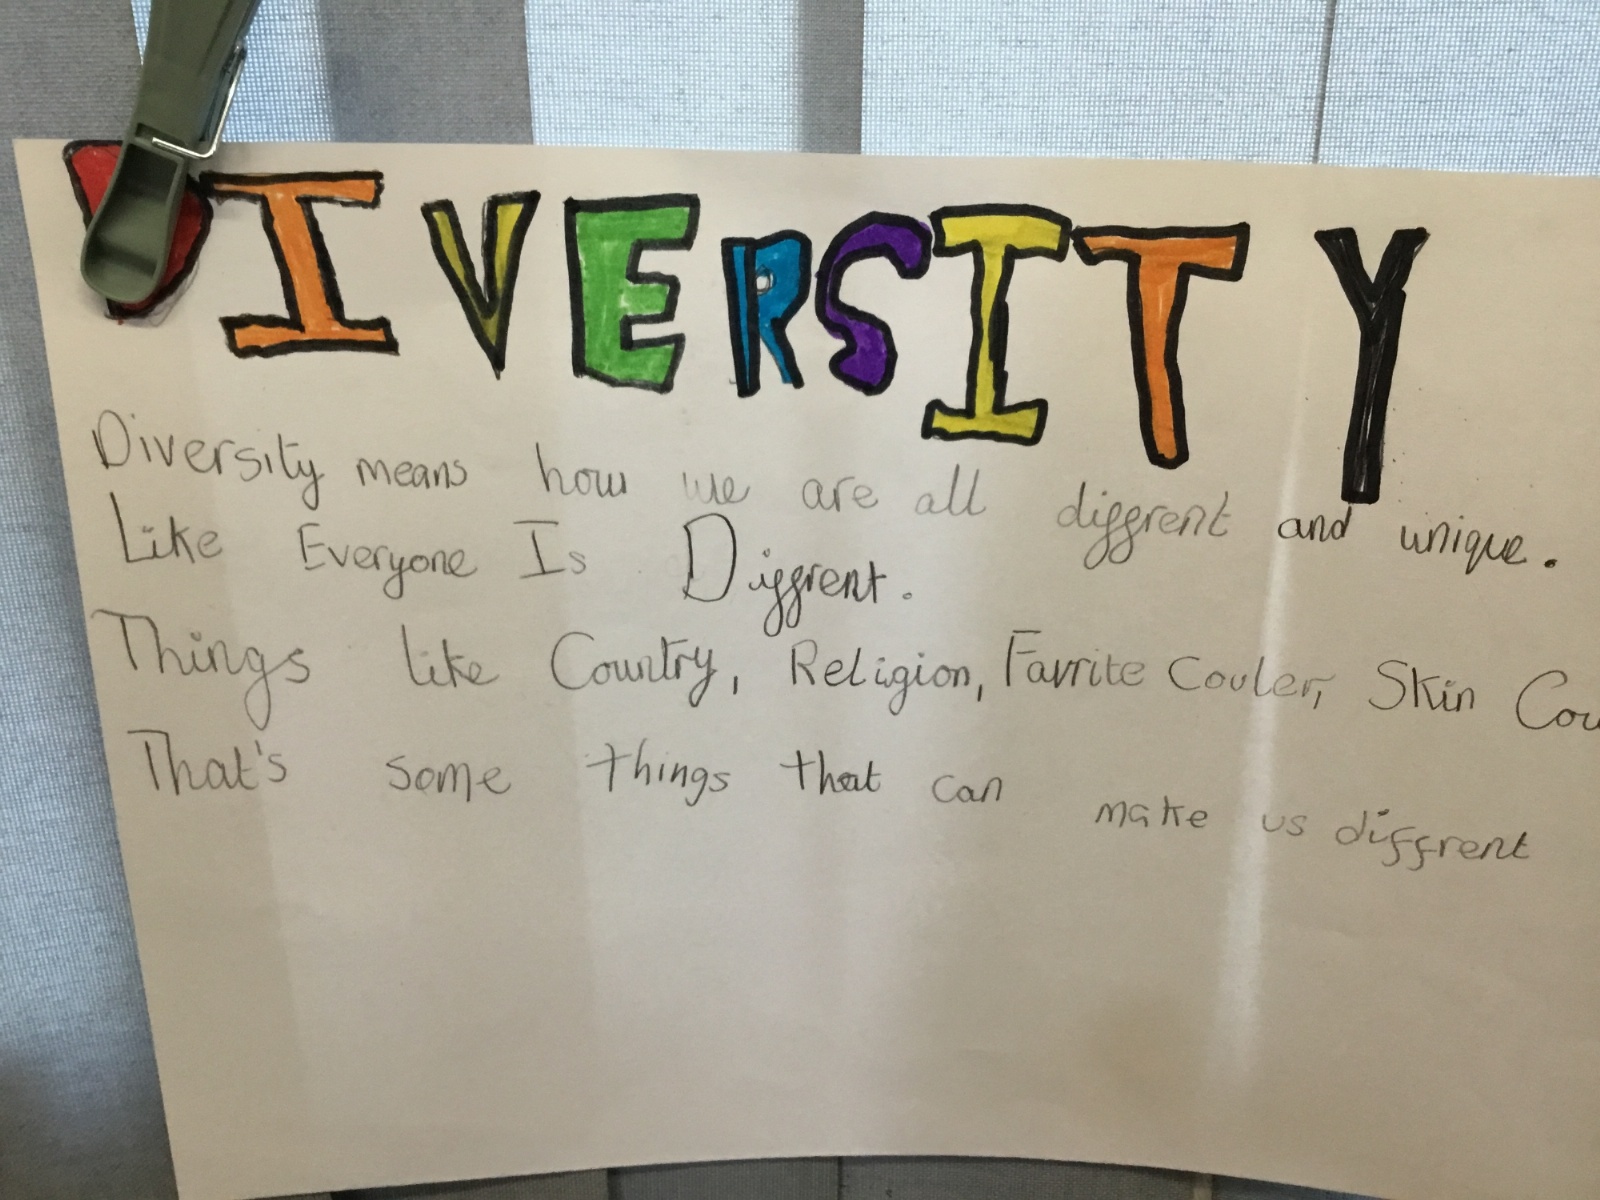 DIVERSITY
Diversity means how we are all diffrent and unique.
Like Everyone Is Diffrent.
Things like Country, Religion, Favrite Couler, Skin Cou
That's some things that can make us diffrent